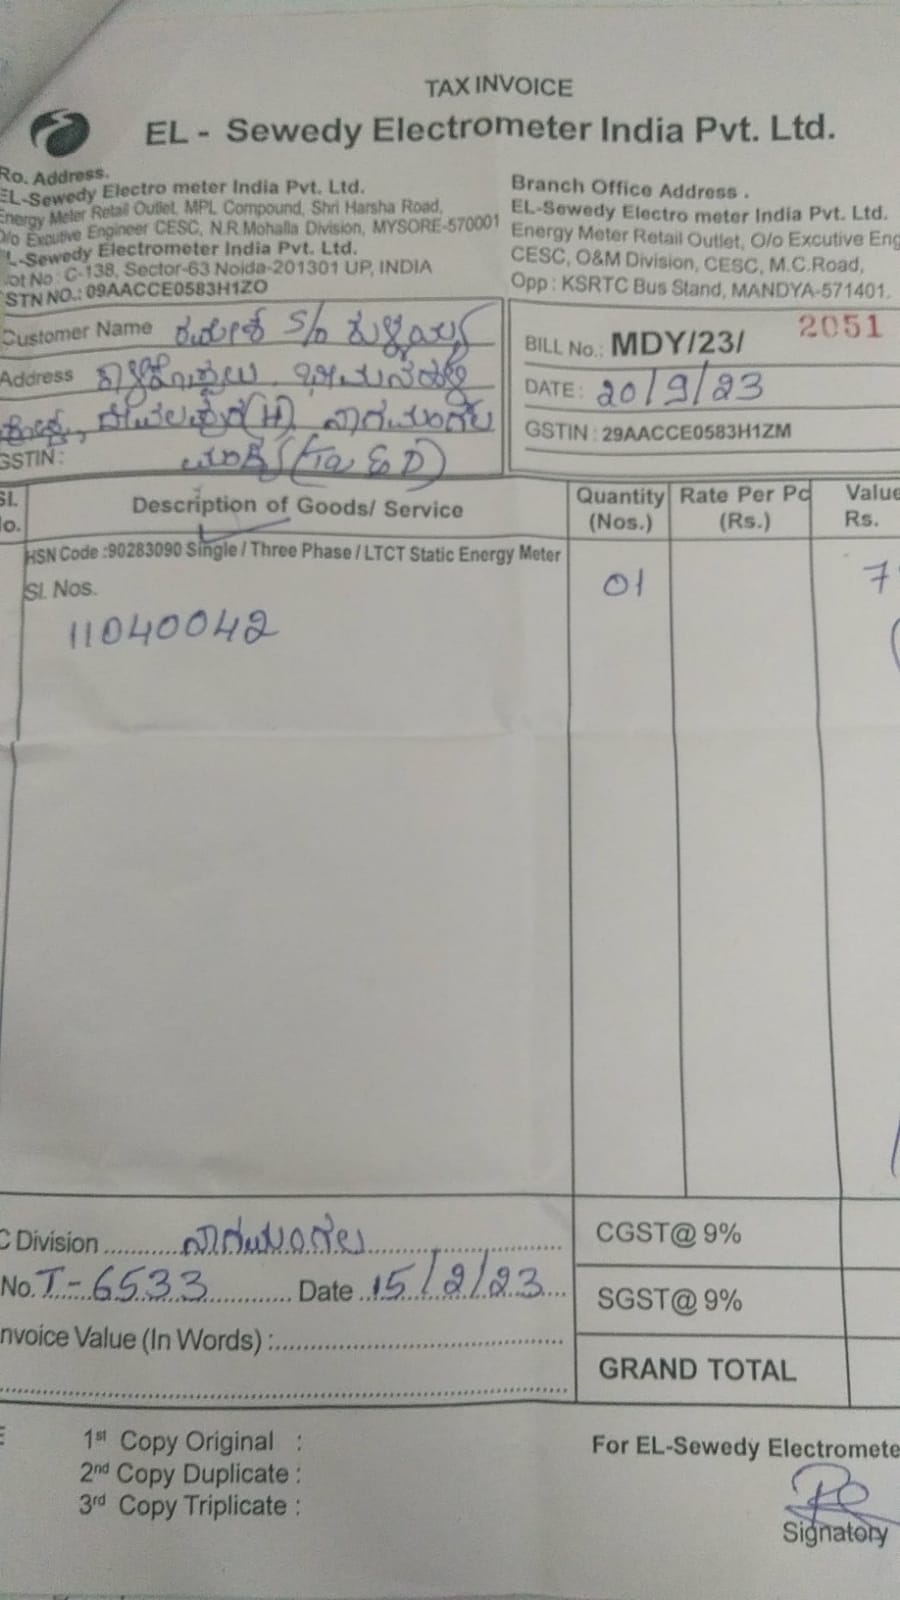 TAX INVOICE
EL - Sewedy Electrometer India Pvt. Ltd.
Ro. Address.
EL-Sewedy Electro meter India Pvt. Ltd.
Energy Meter Retail Outlet, MPL Compound, Shri Harsha Road,
O/o Excutive Engineer CESC, N.R.Mohalla Division, MYSORE-570001
L-Sewedy Electrometer India Pvt. Ltd.
ot No : C-138, Sector-63 Noida-201301 UP, INDIA
STN NO.: 09AACCE0583H1ZO
Branch Office Address .
EL-Sewedy Electro meter India Pvt. Ltd.
Energy Meter Retail Outlet, O/o Excutive Eng
CESC, O&M Division, CESC, M.C.Road,
Opp : KSRTC Bus Stand, MANDYA-571401.
Customer Name S/o
Address
GSTIN:
BILL No.: MDY/23/ 2051
DATE : 20/9/23
GSTIN : 29AACCE0583H1ZM
Sl. Description of Goods/ Service Quantity (Nos.) Rate Per Pc (Rs.) Value Rs.
HSN Code :90283090 Single / Three Phase / LTCT Static Energy Meter
Sl. Nos. 01 7
11040042
C Division ನಾಗಮಂಗಲ
No. T-6533 Date 15/2/23
nvoice Value (In Words) :
CGST@ 9%
SGST@ 9%
GRAND TOTAL
1st Copy Original :
2nd Copy Duplicate :
3rd Copy Triplicate :
For EL-Sewedy Electromete
Signatory